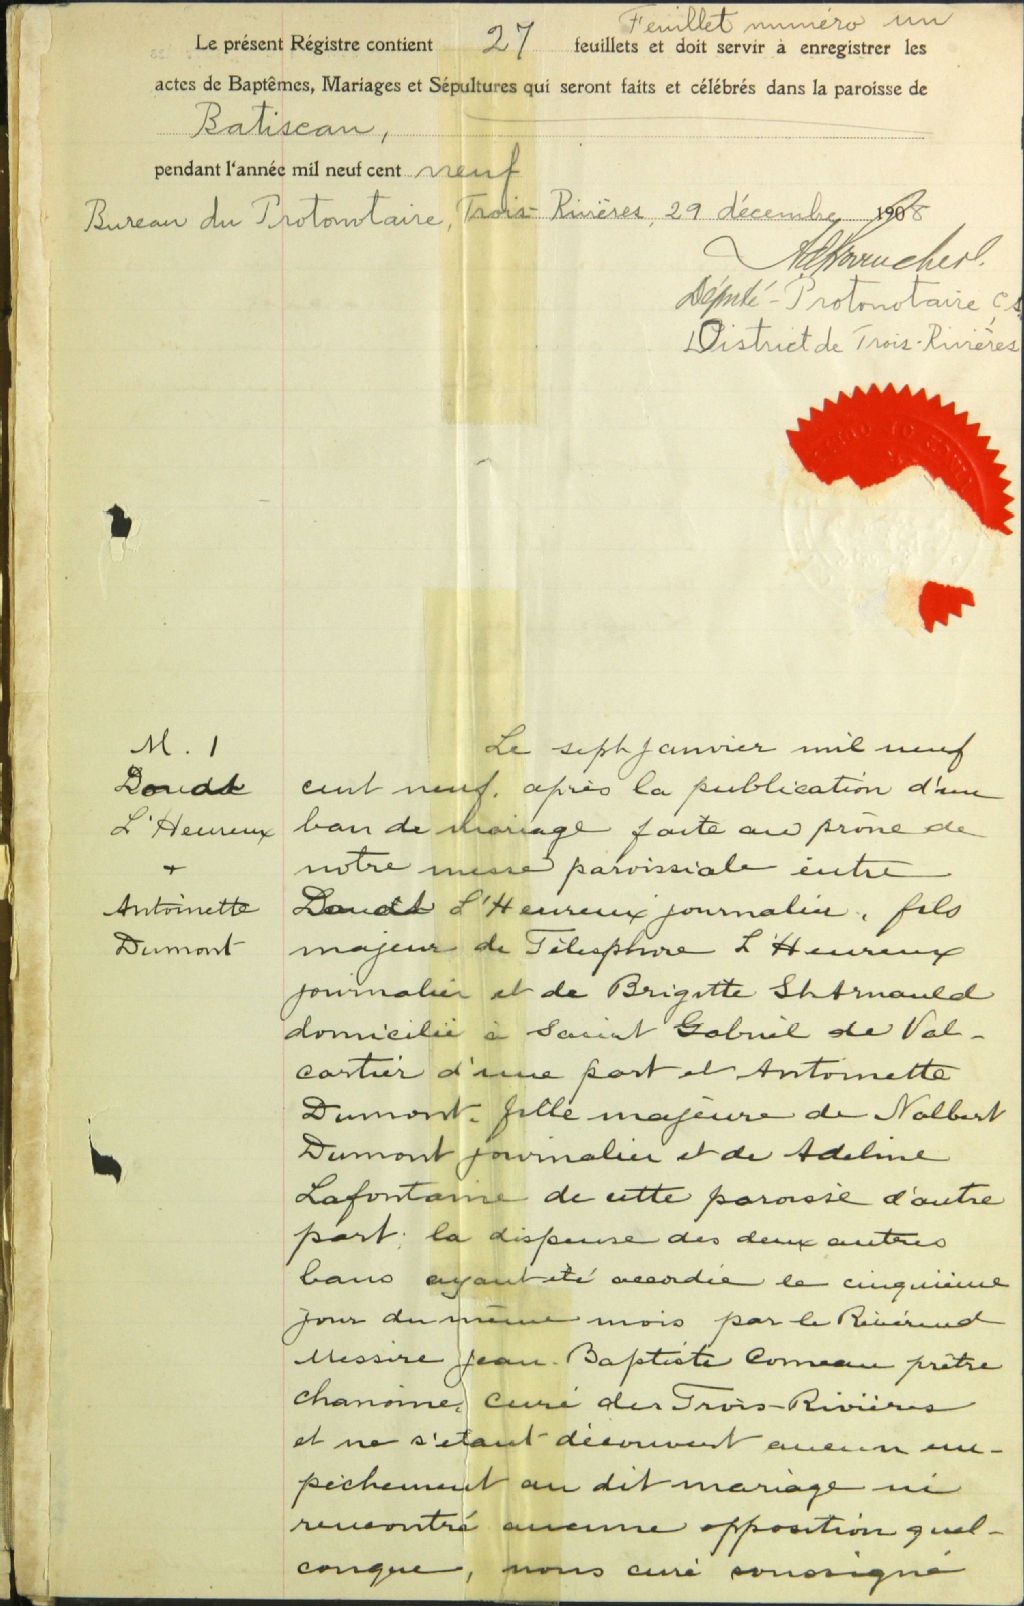 Feuillet numéro un
Le présent Régistre contient 27 feuillets et doit servir à enregistrer les
actes de Baptêmes, Mariages et Sépultures qui seront faits et célébrés dans la paroisse de
Batiscan,
pendant l'année mil neuf cent neuf
Bureau du Protonotaire, Trois-Rivières, 29 décembre 1908
Député-Protonotaire C.S.
District de Trois-Rivières
M. 1
L'Heureux
+
Antoinette
Dumont
Le sept janvier mil neuf
cent neuf, après la publication d'un
ban de mariage faite au prône de
notre messe paroissiale entre
L'Heureux journalier, fils
majeur de Télesphore L'Heureux
journalier et de Brigitte St Arnauld
domicilié à Saint Gabriel de Val-
cartier d'une part et Antoinette
Dumont, fille majeure de Nalbert
Dumont journalier et de Adeline
Lafontaine de cette paroisse d'autre
part; la dispense des deux autres
bans ayant été accordée le cinquième
jour du même mois par le Révérend
Messire Jean-Baptiste Comeau prêtre
chanoine, curé des Trois-Rivières
et ne s'étant découvert aucun em-
pêchement au dit mariage ni
rencontré aucune opposition quel-
conque, nous curé soussigné